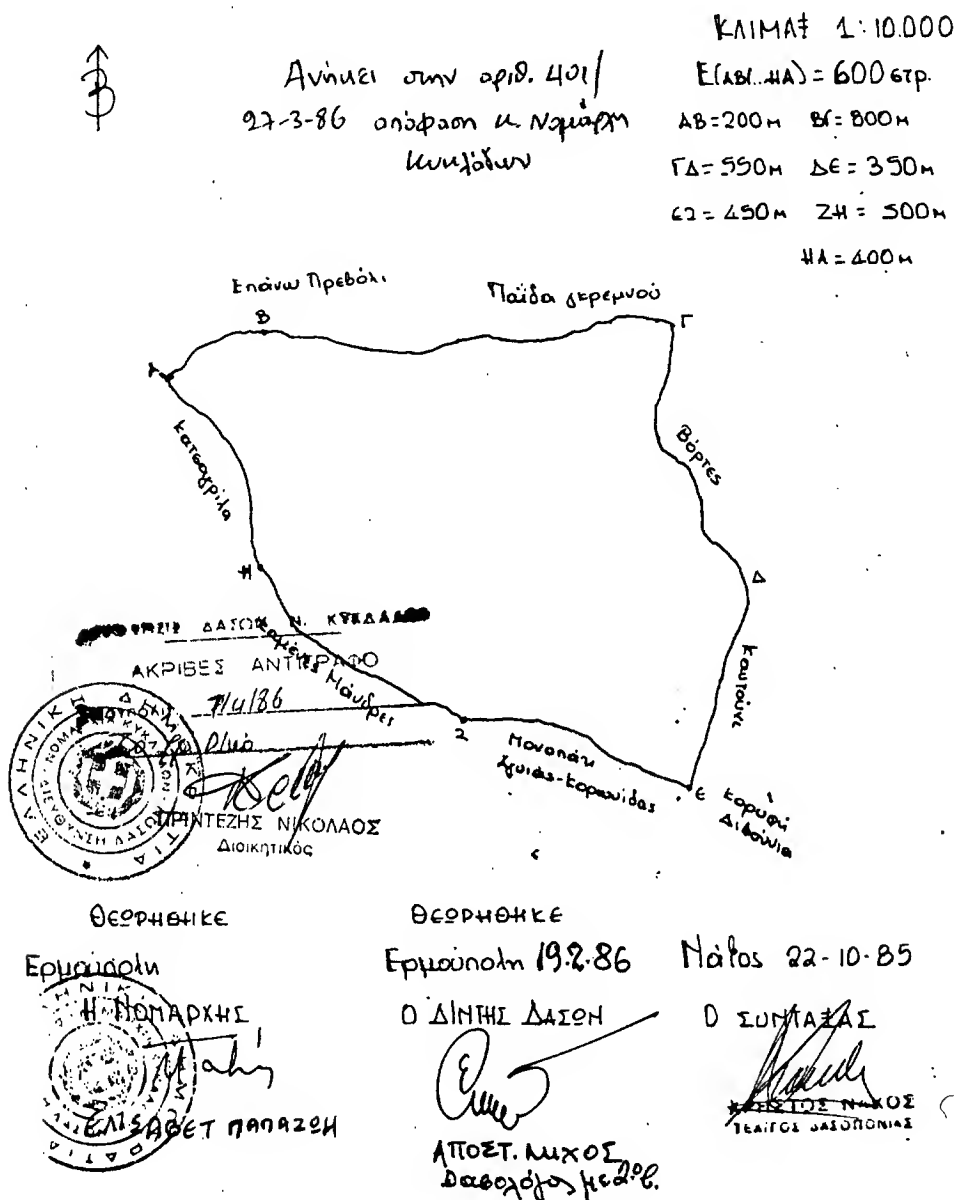 ΚΛΙΜΑΞ 1:10.000
Β
Ανήκει στην αριθ. 401/
27-3-86 απόφαση κ. Νομάρχη
Κυκλάδων
Ε(ΑΒΓ..ΗΑ) = 600 στρ.
ΑΒ=200μ ΒΓ=800μ
ΓΔ=550μ ΔΕ=350μ
ΕΖ=450μ ΖΗ=500μ
ΗΑ=400μ
Επάνω Πρεβόλι
Παϊδα γκρεμνού
Β
Γ
Α
Κατσαγρίλα
Βόρτες
Η
Δ
ΔΑΣΩΝ Ν. ΚΥΚΛΑΔΩΝ
ΑΚΡΙΒΕΣ ΑΝΤΙΓΡΑΦΟ
7/4/86
Μάνδρες
Καυτούνι
Ζ
Μονοπάτι
Σγυιάς-Κορωνίδας
Ε Κορυφή
Διβούνια
ΕΛΛΗΝΙΚΗ ΔΗΜΟΚΡΑΤΙΑ
ΠΡΙΝΤΕΖΗΣ ΝΙΚΟΛΑΟΣ
Διοικητικός
ΘΕΩΡΗΘΗΚΕ
Ερμούπολη
Η ΝΟΜΑΡΧΗΣ
ΕΛΙΣΑΒΕΤ ΠΑΠΑΖΩΗ
ΘΕΩΡΗΘΗΚΕ
Ερμούπολη 19.2.86
Ο ΔΙΝΤΗΣ ΔΑΣΩΝ
ΑΠΟΣΤ. ΛΙΧΟΣ
Δασολόγος με 2ο β.
Νάξος 22-10-85
Ο ΣΥΝΤΑΞΑΣ
ΧΡΗΣΤΟΣ ΝΑΚΟΣ
ΤΕΛΙΤΟΣ ΔΑΣΟΠΟΝΙΑΣ